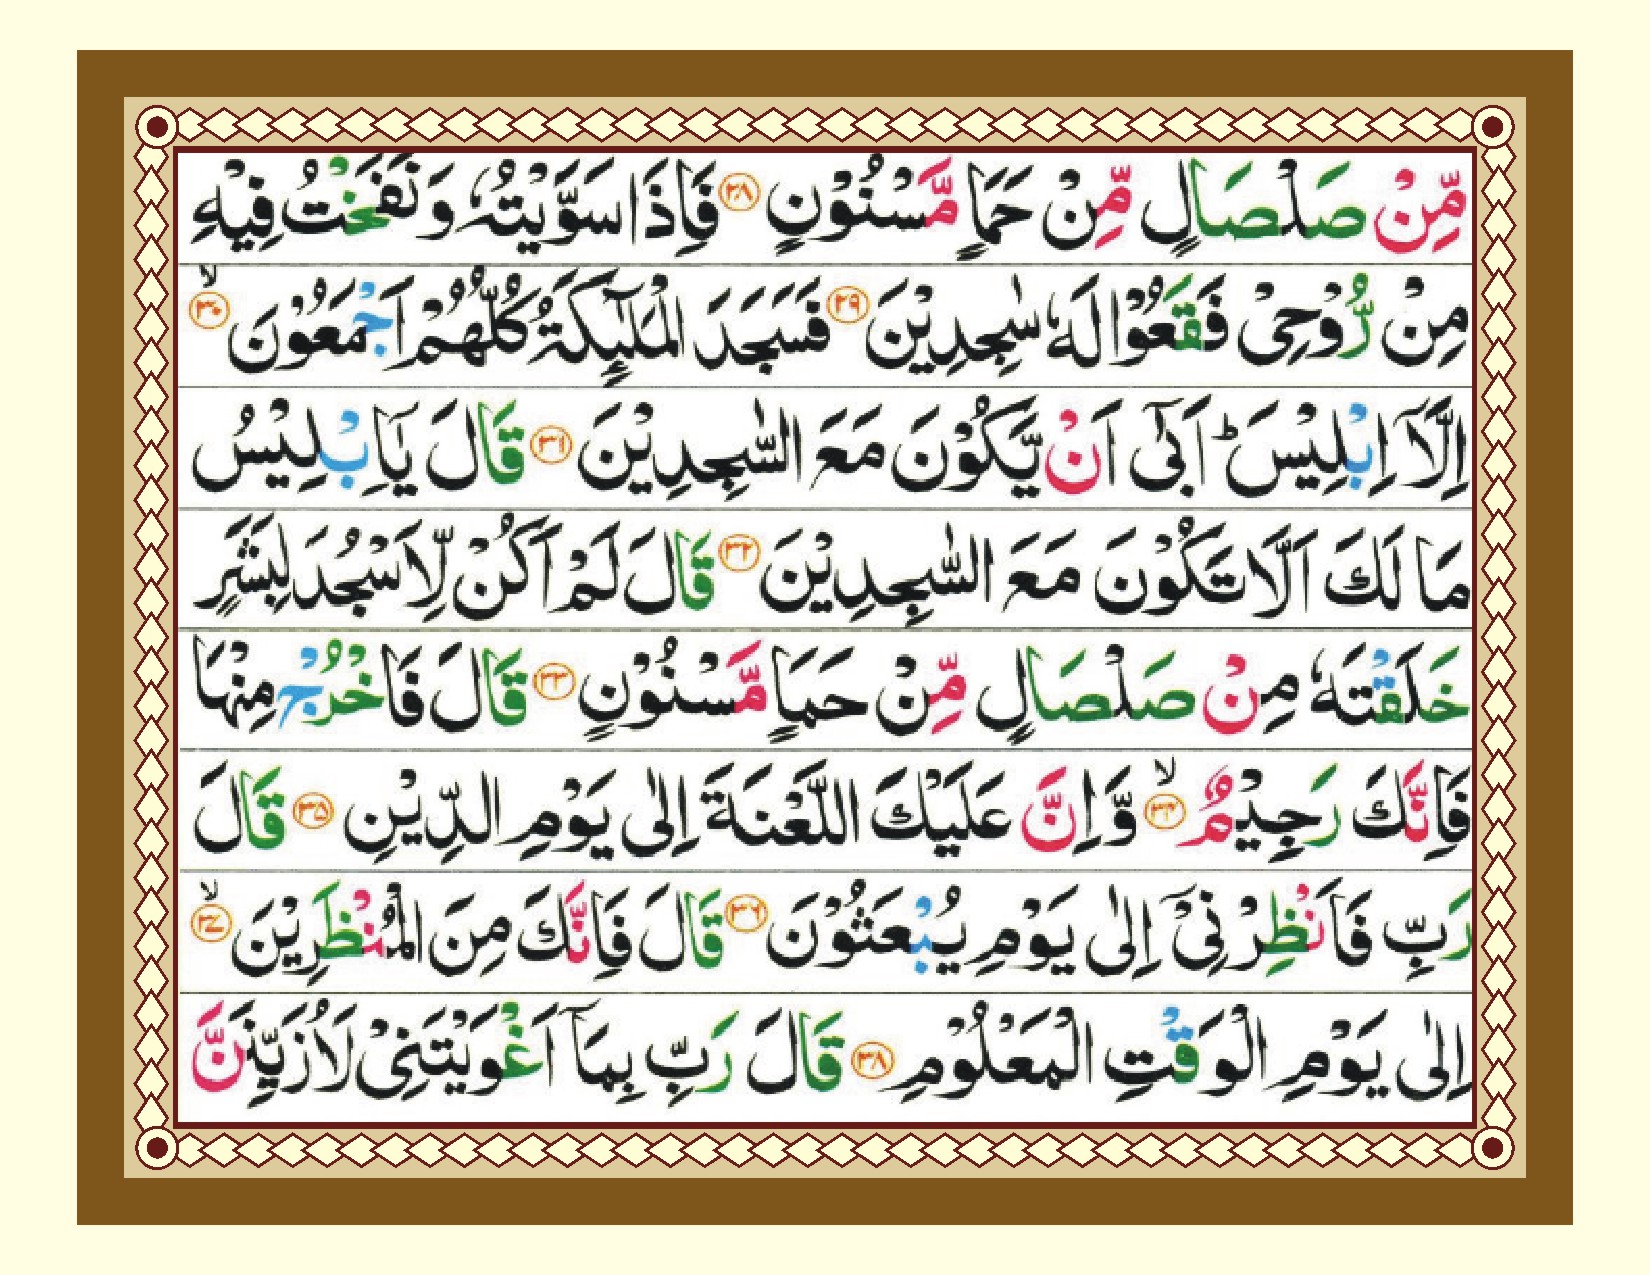 مِّنۡ صَلۡصَالٍ مِّنۡ حَمَاٍ مَّسۡنُوۡنٍ ﴿۲۸﴾ فَاِذَا سَوَّيۡتُهٗ وَ نَفَخۡتُ فِيۡهِ
مِنۡ رُّوۡحِىۡ فَقَعُوۡا لَهٗ سٰجِدِيۡنَ ﴿۲۹﴾ فَسَجَدَ الۡمَلٰٓٮِٕكَةُ كُلُّهُمۡ اَجۡمَعُوۡنَ ﴿۳۰﴾ۙ
اِلَّاۤ اِبۡلِيۡسَؕ اَبٰٓى اَنۡ يَّكُوۡنَ مَعَ السّٰجِدِيۡنَ ﴿۳۱﴾ قَالَ يٰۤاِبۡلِيۡسُ
مَا لَكَ اَلَّا تَكُوۡنَ مَعَ السّٰجِدِيۡنَ ﴿۳۲﴾ قَالَ لَمۡ اَكُنۡ لِّاَسۡجُدَ لِبَشَرٍ
خَلَقۡتَهٗ مِنۡ صَلۡصَالٍ مِّنۡ حَمَاٍ مَّسۡنُوۡنٍ ﴿۳۳﴾ قَالَ فَاخۡرُجۡ مِنۡهَا
فَاِنَّكَ رَجِيۡمٌ ﴿۳۴﴾ۙ وَّ اِنَّ عَلَيۡكَ اللَّعۡنَةَ اِلٰى يَوۡمِ الدِّيۡنِ ﴿۳۵﴾ قَالَ
رَبِّ فَاَنۡظِرۡنِىۡۤ اِلٰى يَوۡمِ يُبۡعَثُوۡنَ ﴿۳۶﴾ قَالَ فَاِنَّكَ مِنَ الۡمُنۡظَرِيۡنَ ﴿۳۷﴾ۙ
اِلٰى يَوۡمِ الۡوَقۡتِ الۡمَعۡلُوۡمِ ﴿۳۸﴾ قَالَ رَبِّ بِمَاۤ اَغۡوَيۡتَنِىۡ لَاُزَيِّنَنَّ